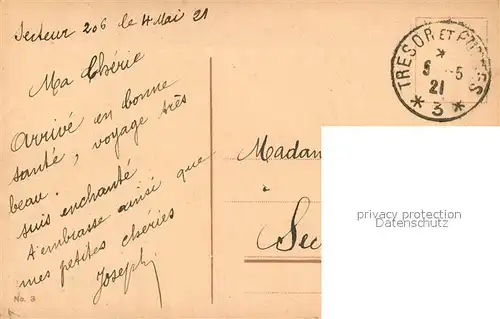 Secteur 206 le 4 Mai 21
Ma Chérie
Arrivé en bonne
santé, voyage très
beau.
suis enchanté
T'embrasse ainsi que
mes petites chéries
Joseph
No. 3
TRESOR ET POSTES
*
5 -5
21
* 3 *
Madam
à
Sec
privacy protection
Datenschutz